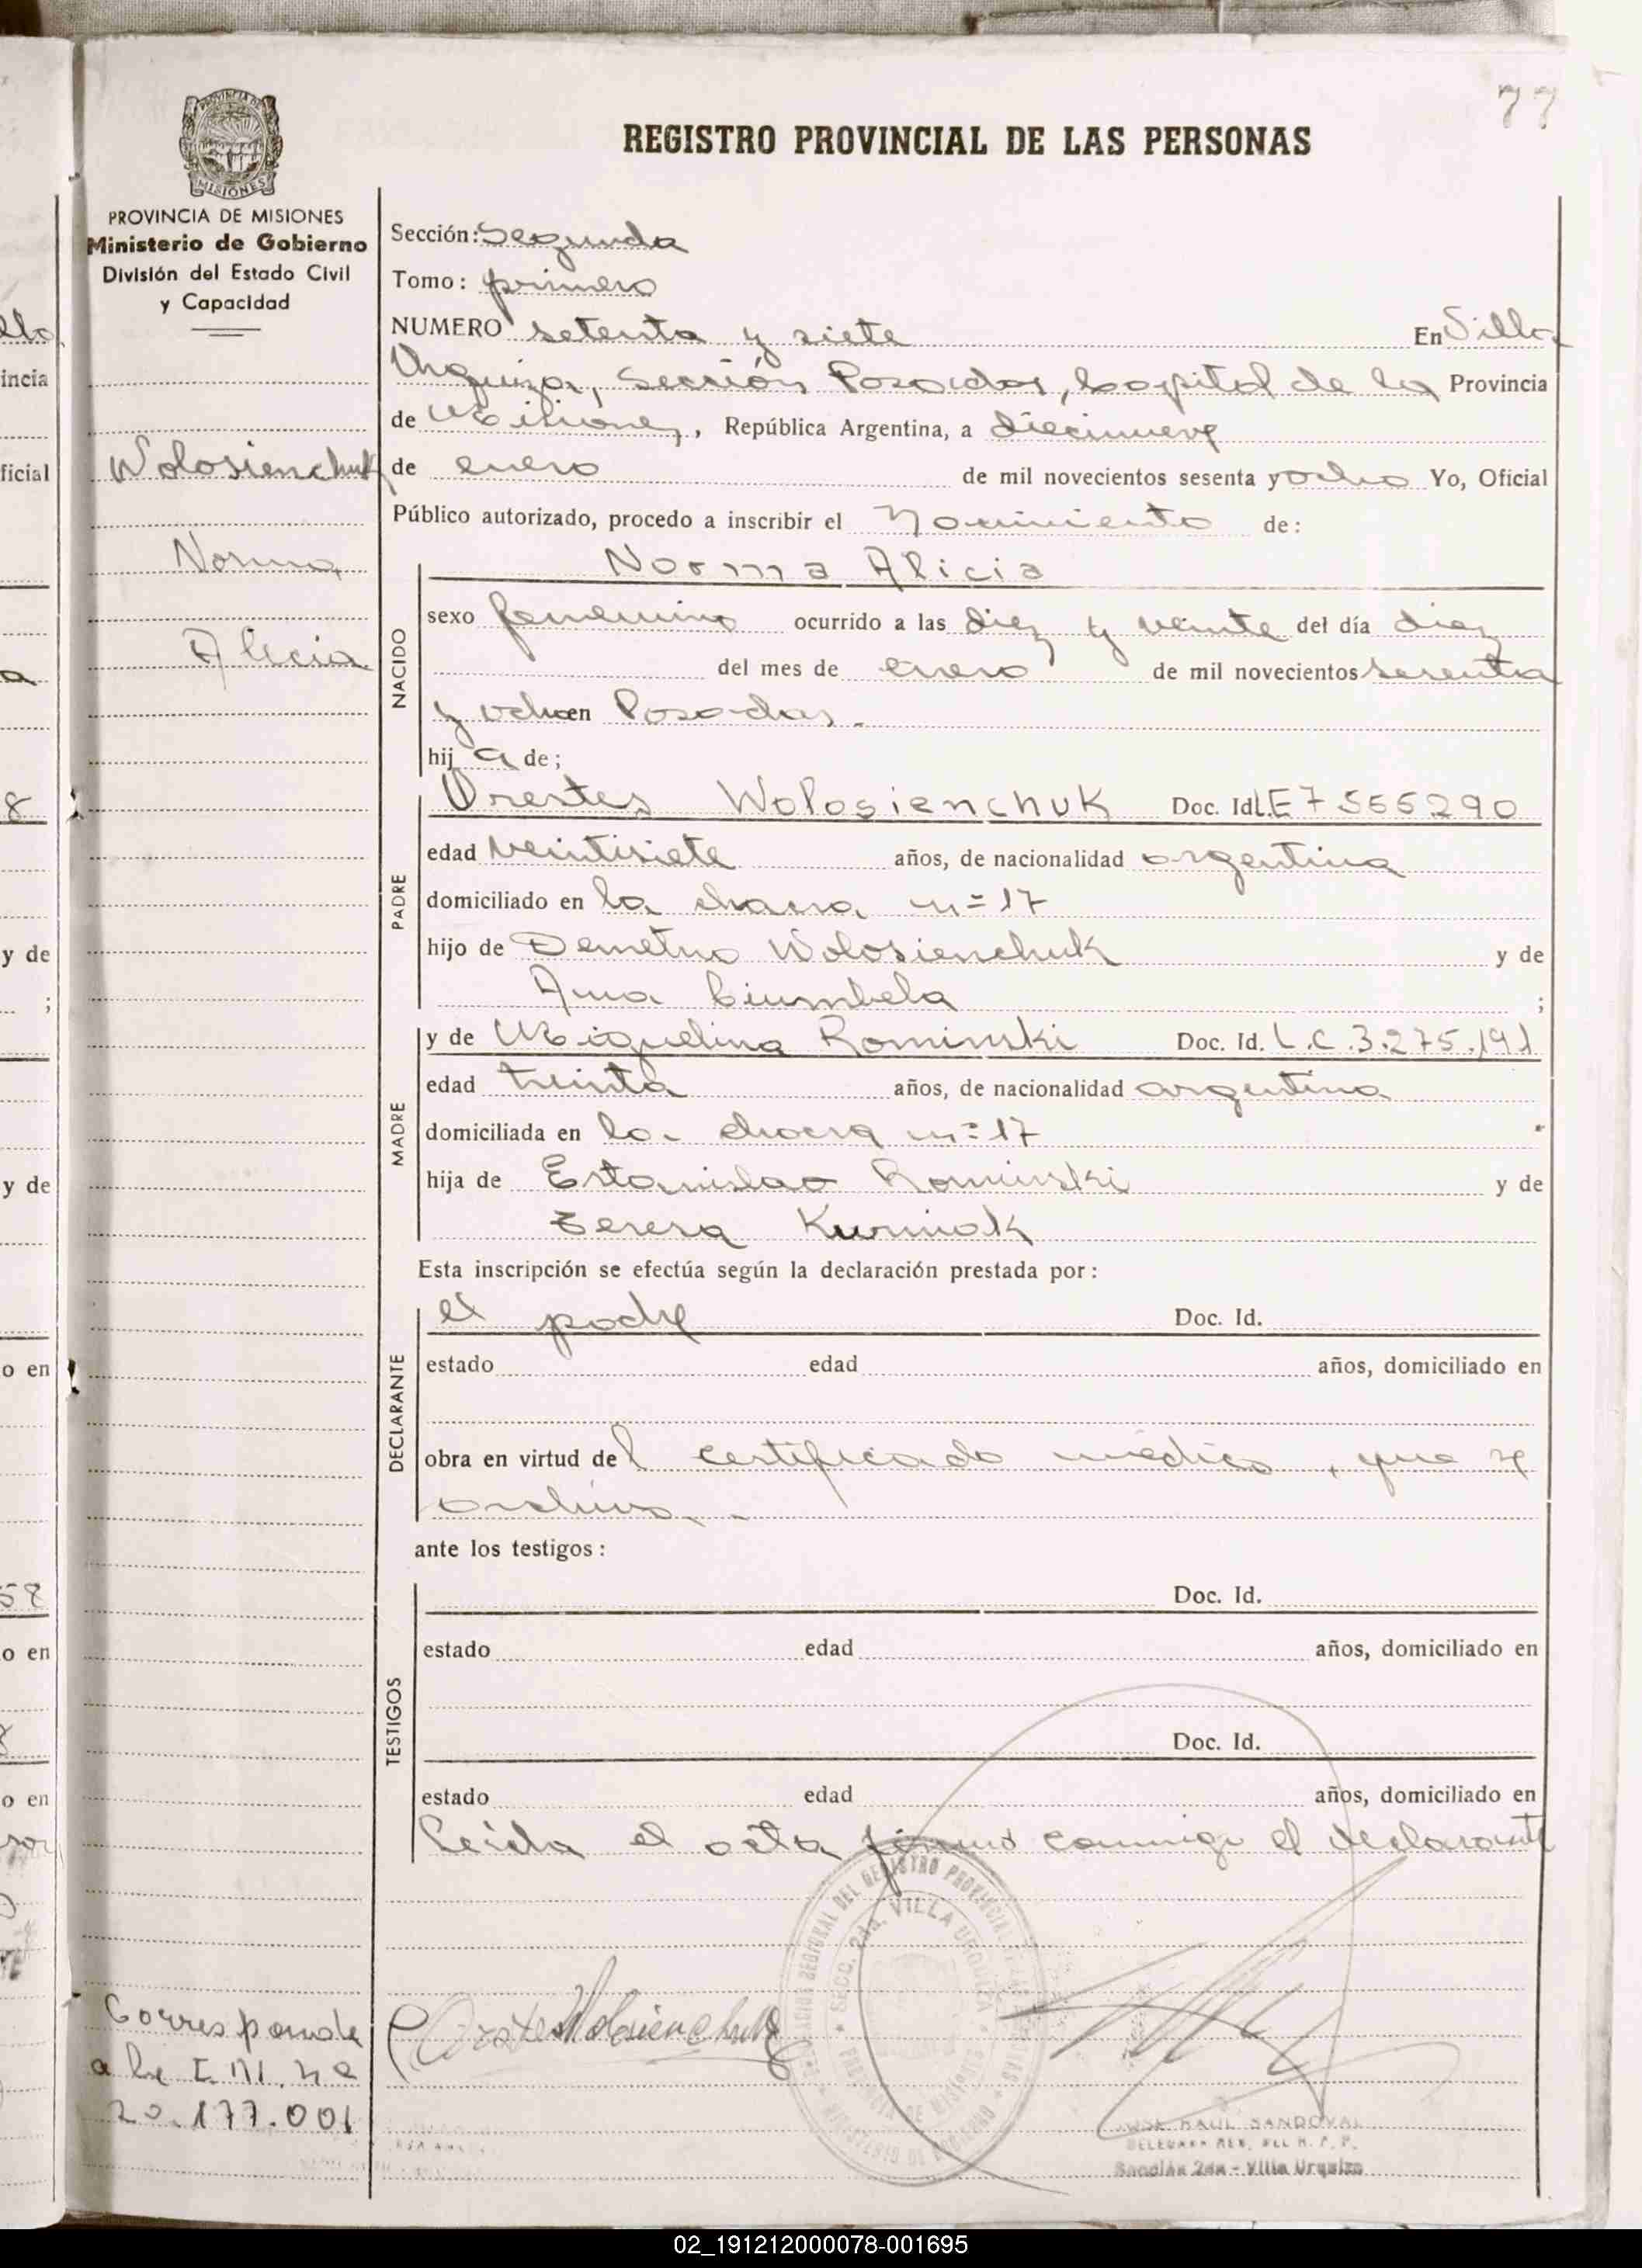 77
REGISTRO PROVINCIAL DE LAS PERSONAS
PROVINCIA DE MISIONES
Ministerio de Gobierno
División del Estado Civil
y Capacidad
Wolosienchuk
Norma
Alicia
Sección: Segunda
Tomo: primero
NUMERO setenta y siete En Villa
Urquiza, Sección Posadas, Capital de la Provincia
de Misiones, República Argentina, a diecinueve
de enero de mil novecientos sesenta y ocho Yo, Oficial
Público autorizado, procedo a inscribir el Nacimiento de:
Norma Alicia
NACIDO
sexo femenino ocurrido a las diez y veinte del día diez
del mes de enero de mil novecientos sesenta
y ocho en Posadas.
hij a de;
PADRE
Orestes Wolosienchuk Doc. Id. L.E 7 555290
edad veintisiete años, de nacionalidad argentina
domiciliado en la chacra nº 17
hijo de Demetrio Wolosienchuk y de
Ana Ciumbela ;
MADRE
y de Miguelina Rominski Doc. Id. L.C.3.275.191
edad treinta años, de nacionalidad argentina
domiciliada en la chacra nº 17
hija de Estanislao Rominski y de
Teresa Kurniak
Esta inscripción se efectúa según la declaración prestada por:
DECLARANTE
el padre Doc. Id.
estado edad años, domiciliado en
obra en virtud del certificado médico, que se
archiva.
ante los testigos:
TESTIGOS
Doc. Id.
estado edad años, domiciliado en
Doc. Id.
estado edad años, domiciliado en
Leída el acta firma conmigo el declarante
Orestes Wolosienchuk
SECC. 2da. VILLA URQUIZA
PROVINCIA DE MISIONES
MINISTERIO DE GOBIERNO
JOSE RAUL SANDOVAL
Sección 2da - Villa Urquiza
Corresponde
a la I.M. nº
20.177.001
02_191212000078-001695